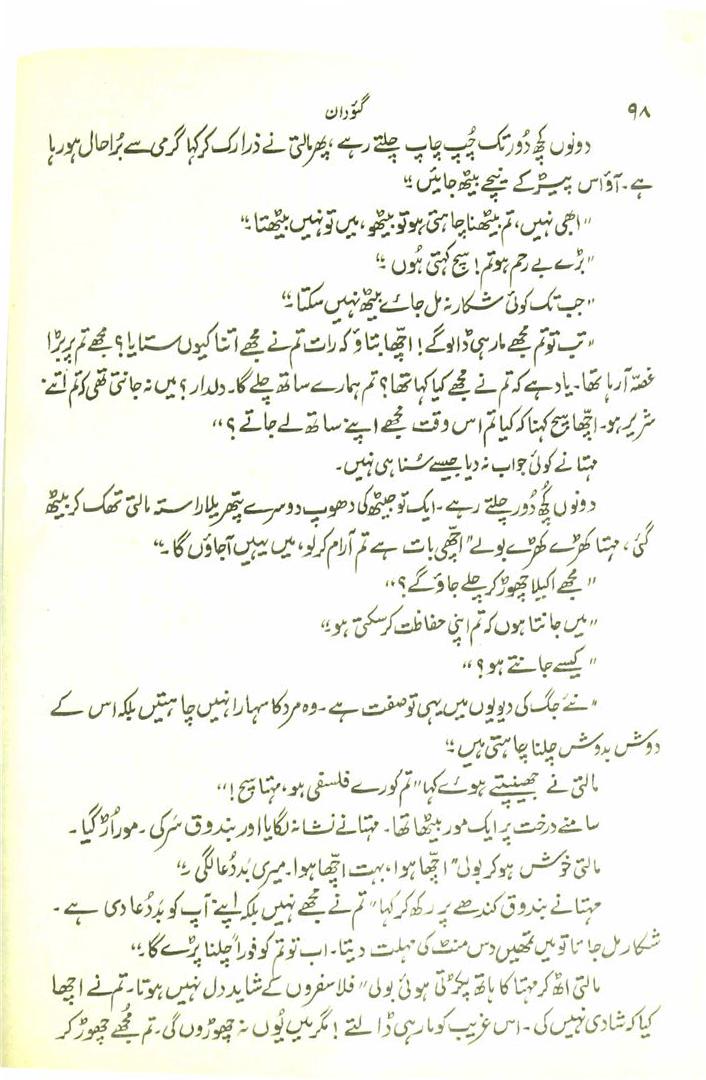 ۹۸
گئودان
دونوں کچھ دُور تک چُپ چاپ چلتے رہے، پھر مالتی نے ذرا رک کر کہا گرمی سے بُرا حال ہو رہا
ہے۔ آؤ اس پیڑ کے نیچے بیٹھ جائیں۔“
”ابھی نہیں، تم بیٹھنا چاہتی ہو تو بیٹھو، میں تو نہیں بیٹھتا۔“
”بڑے بے رحم ہو تم! سچ کہتی ہُوں۔“
”جب تک کوئی شکار نہ مل جائے بیٹھ نہیں سکتا۔“
”تب تو تم مجھے مار ہی ڈالو گے! اچھا بتاؤ کہ رات تم نے مجھے اتنا کیوں ستایا؟ مجھے تم پر بڑا
غصّہ آ رہا تھا۔ یاد ہے کہ تم نے مجھے کیا کہا تھا؟ تم ہمارے ساتھ چلے گا۔ دلدار؟ میں نہ جانتی تھی کہ تم اتنے
شریر ہو۔ اچھا سچ کہنا کہ کیا تم اس وقت مجھے اپنے ساتھ لے جاتے؟“
مہتا نے کوئی جواب نہ دیا جیسے سُنا ہی نہیں۔
دونوں کچھ دُور چلتے رہے۔ ایک تو جیٹھ کی دھوپ دوسرے پتھریلا راستہ مالتی تھک کر بیٹھ
گئی، مہتا کھڑے کھڑے بولے ”اچھی بات ہے تم آرام کر لو، میں یہیں آ جاؤں گا۔“
”مجھے اکیلا چھوڑ کر چلے جاؤ گے؟“
”میں جانتا ہوں کہ تم اپنی حفاظت کر سکتی ہو۔“
”کیسے جانتے ہو؟“
”نئے جگ کی دیویوں میں یہی تو صفت ہے۔ وہ مرد کا سہارا نہیں چاہتیں بلکہ اس کے
دوش بدوش چلنا چاہتی ہیں۔“
مالتی نے جھینپتے ہوئے کہا ”تم کورے فلسفی ہو، مہتا سچ!“
سامنے درخت پر ایک مور بیٹھا تھا۔ مہتا نے نشانہ لگایا اور بندوق سر کی۔ مور اُڑ گیا۔
مالتی خوش ہو کر بولی ”اچھا ہوا، بہت اچھا ہوا۔ میری بد دُعا لگی۔“
مہتا نے بندوق کندھے پر رکھ کر کہا ”تم نے مجھے نہیں بلکہ اپنے آپ کو بد دُعا دی ہے۔
شکار مل جاتا تو میں تمھیں دس منٹ کی مہلت دیتا۔ اب تو تم کو فوراً چلنا پڑے گا۔“
مالتی اٹھ کر مہتا کا ہاتھ پکڑتی ہوئی بولی ”فلاسفروں کے شاید دل نہیں ہوتا۔ تم نے اچھا
کیا کہ شادی نہیں کی۔ اس غریب کو مار ہی ڈالتے! مگر میں یُوں نہ چھوڑوں گی۔ تم مجھے چھوڑ کر